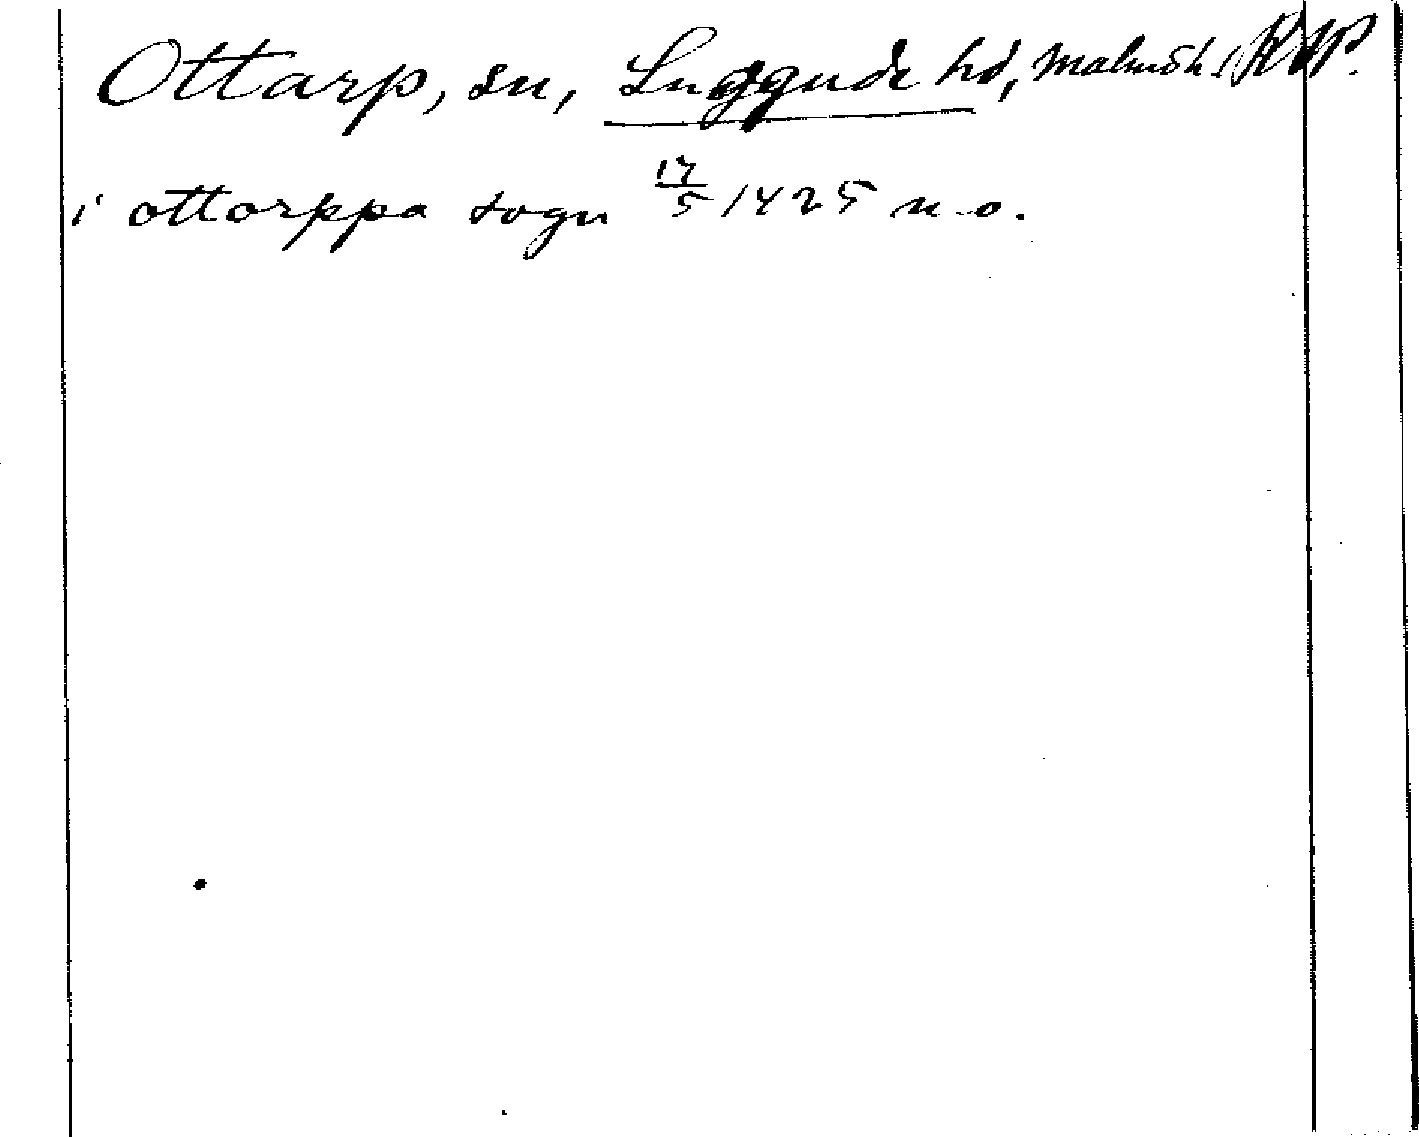 Ottarp, sn, Luggude hd, Malmöh. RAP.
i ottorppa sogn 17/5 1425 n.o.